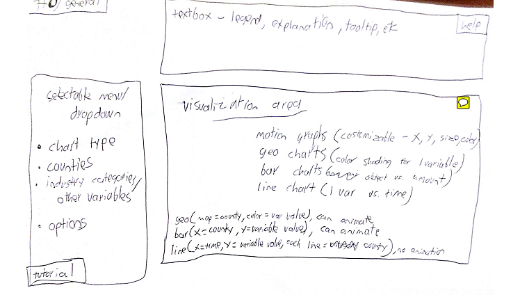 #0/ general
textbox - legend, explanation, tooltip, etc
help
selectable menu/
dropdown
• chart type
• counties
• industry categories/
other variables
• options
tutorial
visualization area
motion graphs (customizable - x, y, size, color)
geo charts (color shading for 1 variable)
bar charts object vs amount)
line chart (1 var vs. time)
geo (map = county, color = var value), can animate
bar (x = county, y = variable value), can animate
line (x = time, y = variable value, each line = county), no animation